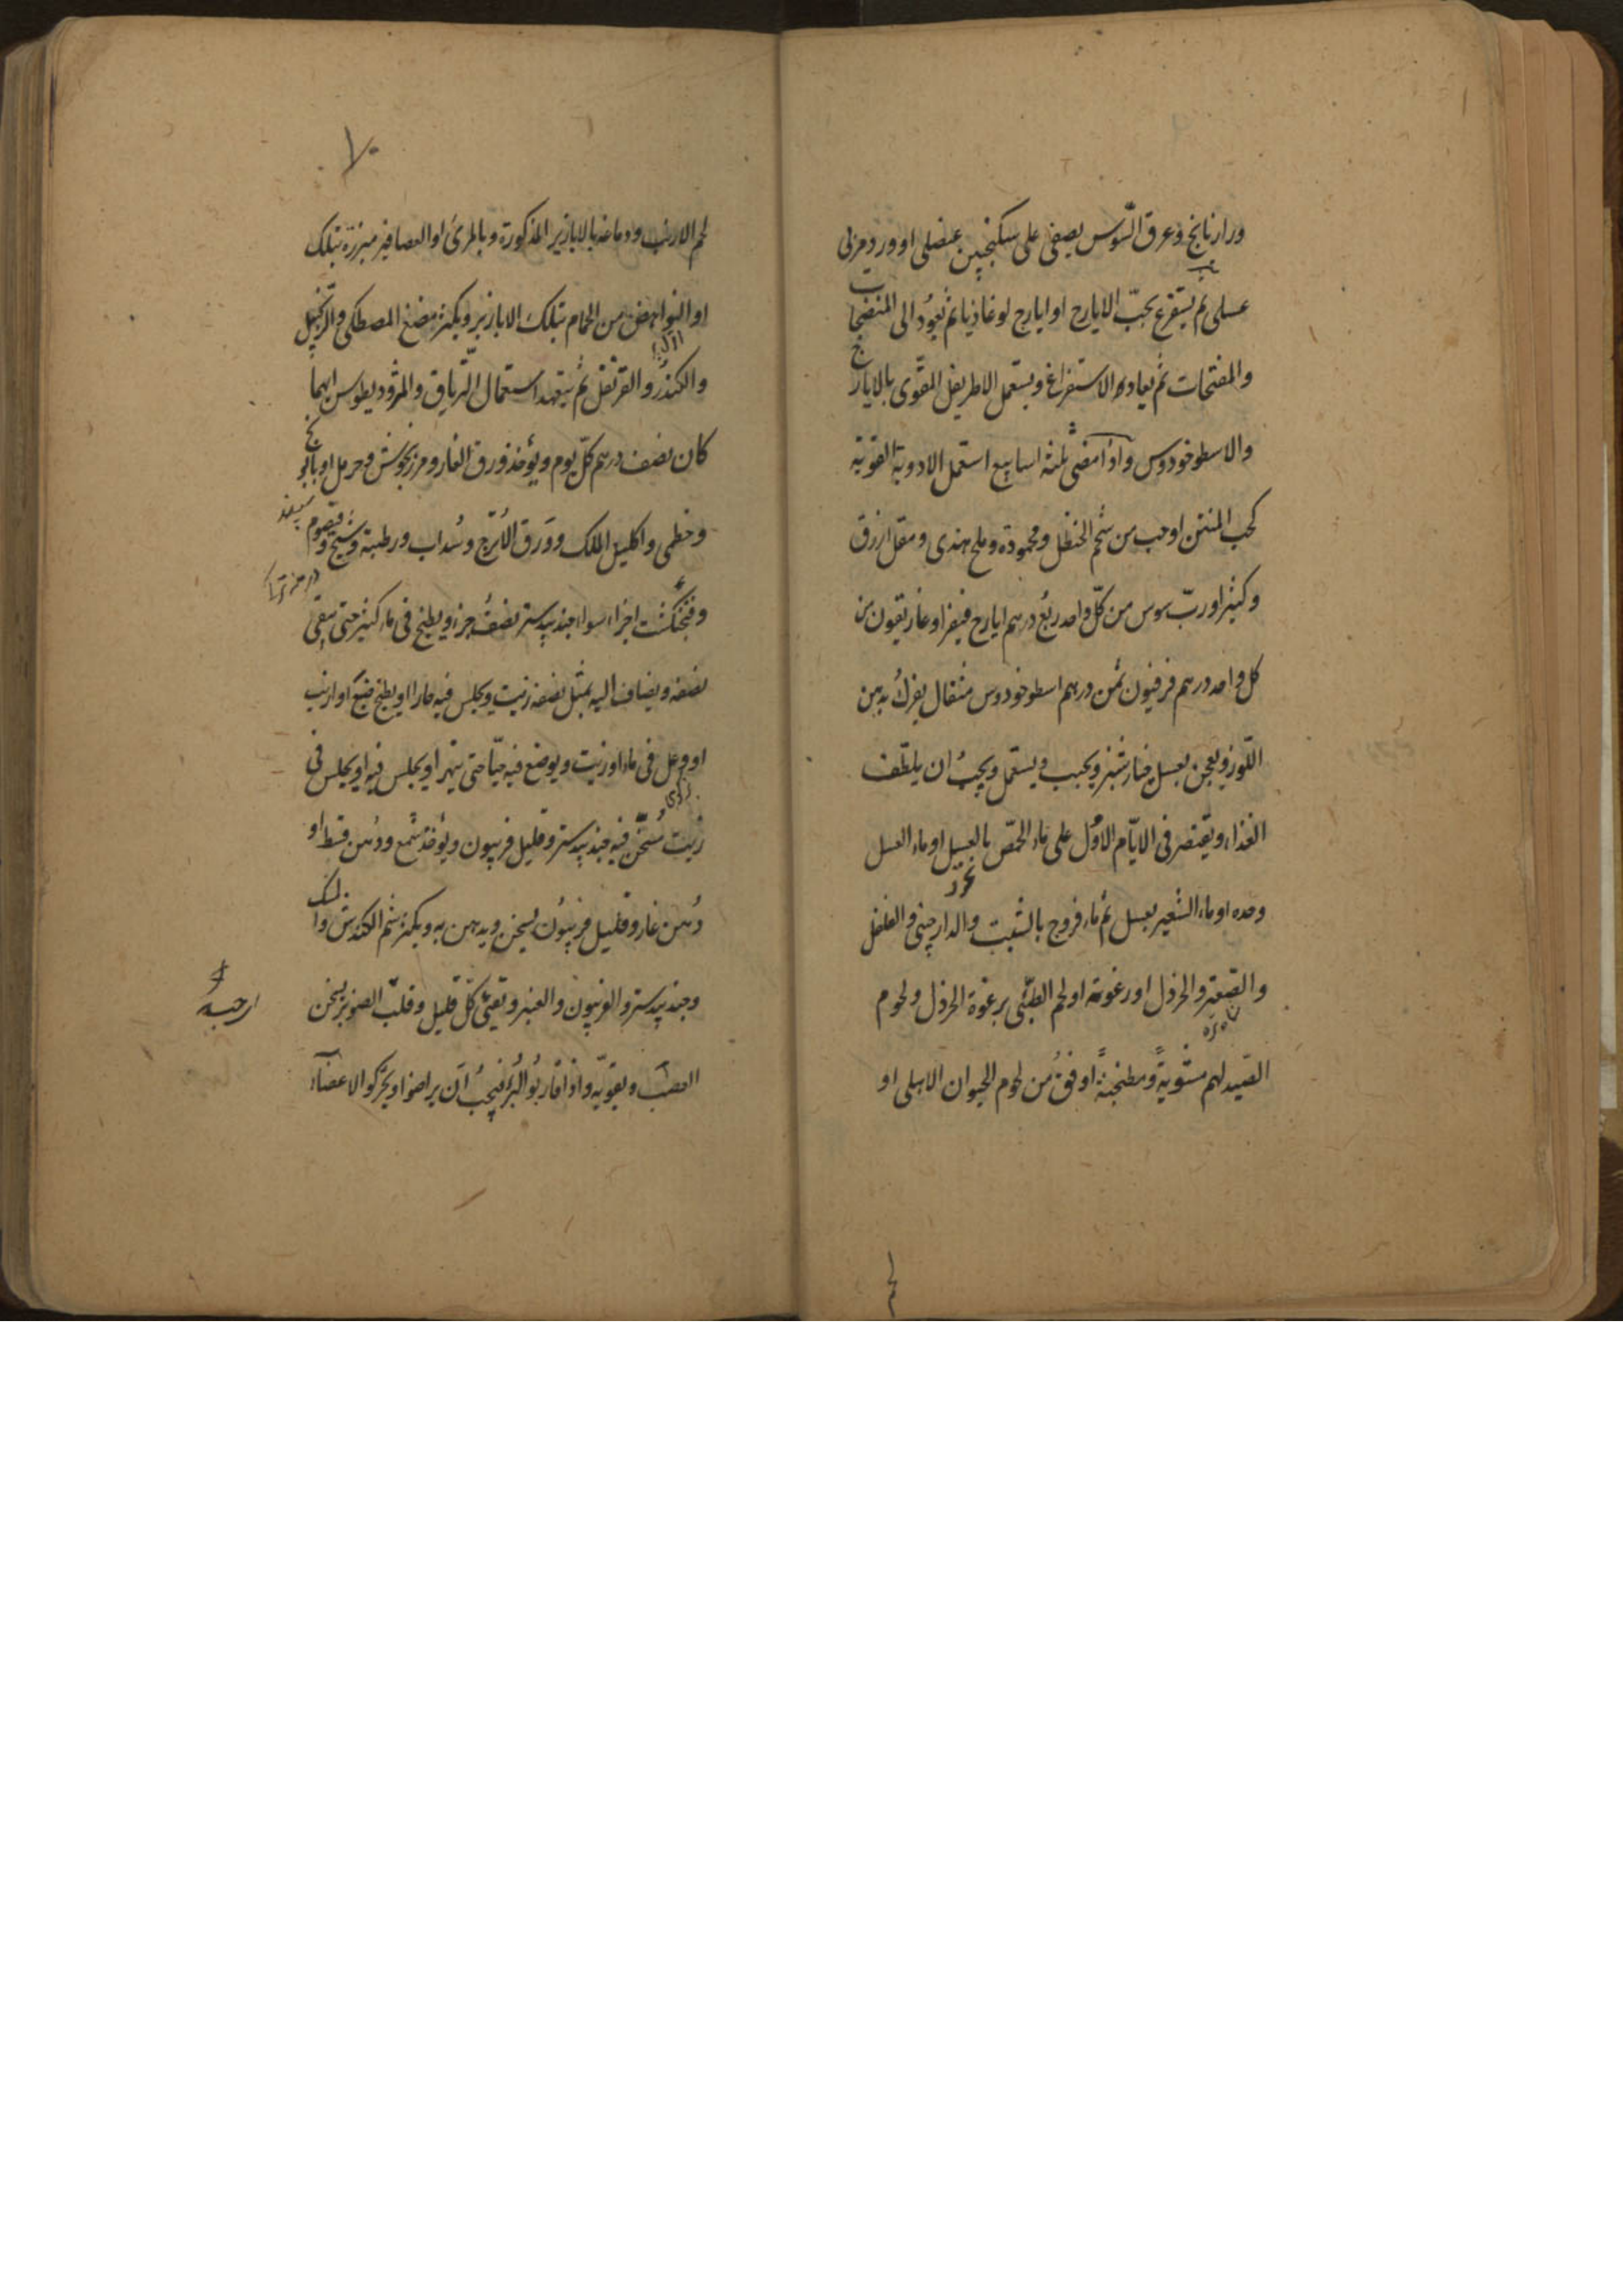 ورازيانج وعرق السّوس يصفى على سكنجبين عنصلى او ورد مربى
عسلى ثم يستفرغ بحبّ الايارج او ايارج لوغاذيا ثم يعودُ الى المنضجات
والمفتحات ثم يعاود الاستفراغ ويستعمل الاطريفل المقوّى بالايارج
والاسطوخودوس واذا مضى ثلثة اسابيع استعمل الادوية القوية
كحب المنتن او حب من شحم الحنظل ومحمودة وملح هندى ومقل ازرق
وكثيرا وربّ سوس من كلّ واحد ربع درهم ايارج فيقرا وغاريقون من
كل واحد درهم فرفيون ثمن درهم اسطوخودوس مثقال يفرك بدهن
اللّوز ويعجن بعسل خيارشنبر ويحبب ويستعمل ويجبُ ان يلطّف
الغذاء ويقتصر فى الايّام الاُوَل على ماء الحمّص بالعسل او ماء العسل
وحده او ماء الشعير بعسل ثم ماء فروج بالشبت والدارچينى والفلفل
والصّعتر والخردل او رغوته او لحم الظبى برغوة الخردل ولحوم
الصّيد لهم مشويةً ومطنجنةً اوفقُ من لحوم الحيوان الاهلى او
لحم
لحم الارنب ودماغه بالابازير المذكورة وبالمرىّ او العصافير مبزرة بتلك
او النواهض من الحمام بتلك الابازير ويكثر مضغ المصطكى والزنجبيل
والكندر والقرنفل ثم يتعهد استعمال الترياق والمثروديطوس ايهما
كان نصف درهم كلّ يوم ويؤخذ ورق الغار ومرزنجوش وحرمل او بابونج
وخطمى واكليل الملك وورق الاُترج وسُداب ورطبة وشيح وقيصوم
وفنجنكشت اجزاء سواء جندبيدستر نصفُ جزء ويطبخ فى ماء كثير حتى يبقى
نصفه ويضاف اليه بمثل نصفه زيت ويجلس فيه حارا او يطبخ ضبع او ارنب
او وعل فى ماء او زيت ويوضع فيه حيّا حتى يتهرا ويجلس فيه او يجلس فى
زيت سُخّن فيه جندبيدستر وقليل فربيون ويؤخذ شمع ودُهن قسط او
دُهن غار وقليل فربيون يسخن ويدهن به ويكثر شم الكندش والمسك
وجندبيدستر والفربيون والعنبر وتقيئ كلّ قليل وقلبّ الصنوبر يسخن
العصب ويقويّه واذا قاربوُا البُرْءَ فيجبُ اَن يراضوا ويحرّكوا الاعضاء